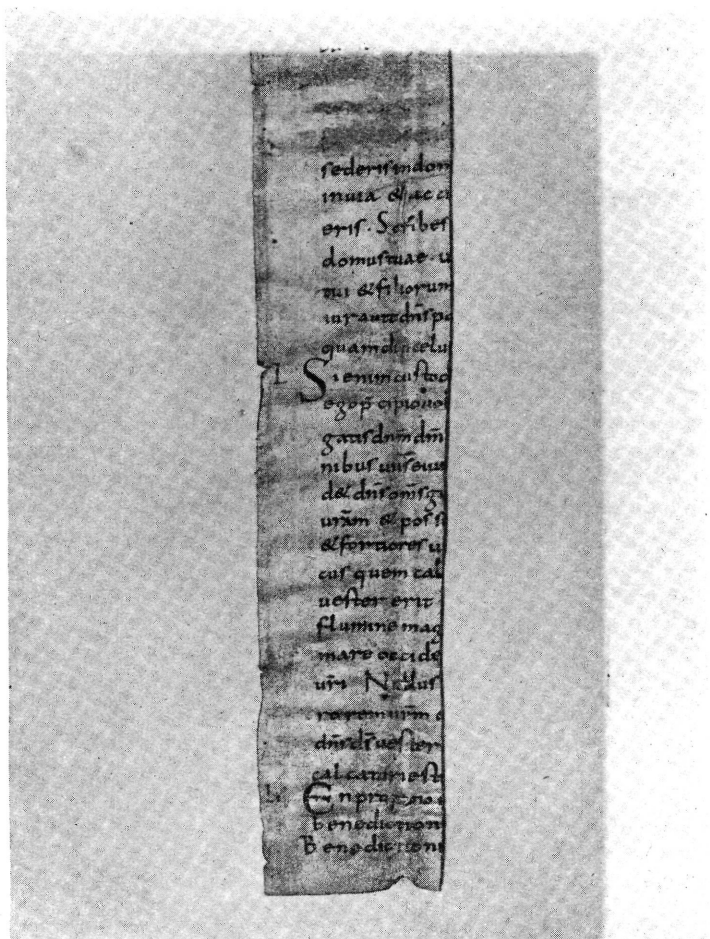 sederis indom
inuia & accu
eris. Scribes
domus tuae. u
tui & filiorum
iurauit dn̄s pa
quamdiu celu
L Si enim custod
ego p̄cipio uob
gatis dnm̄ dm̄
nibus uiis eius
d& dn̄s om̄s g
urām & poss
& fortiores u
cus quem cal
uester erit
flumine mag
mare occide
ur̄i Nullus
rorem ur̄m
dn̄s dī uester
calcaturi est
LI En propono
Benediction
Benedictioni